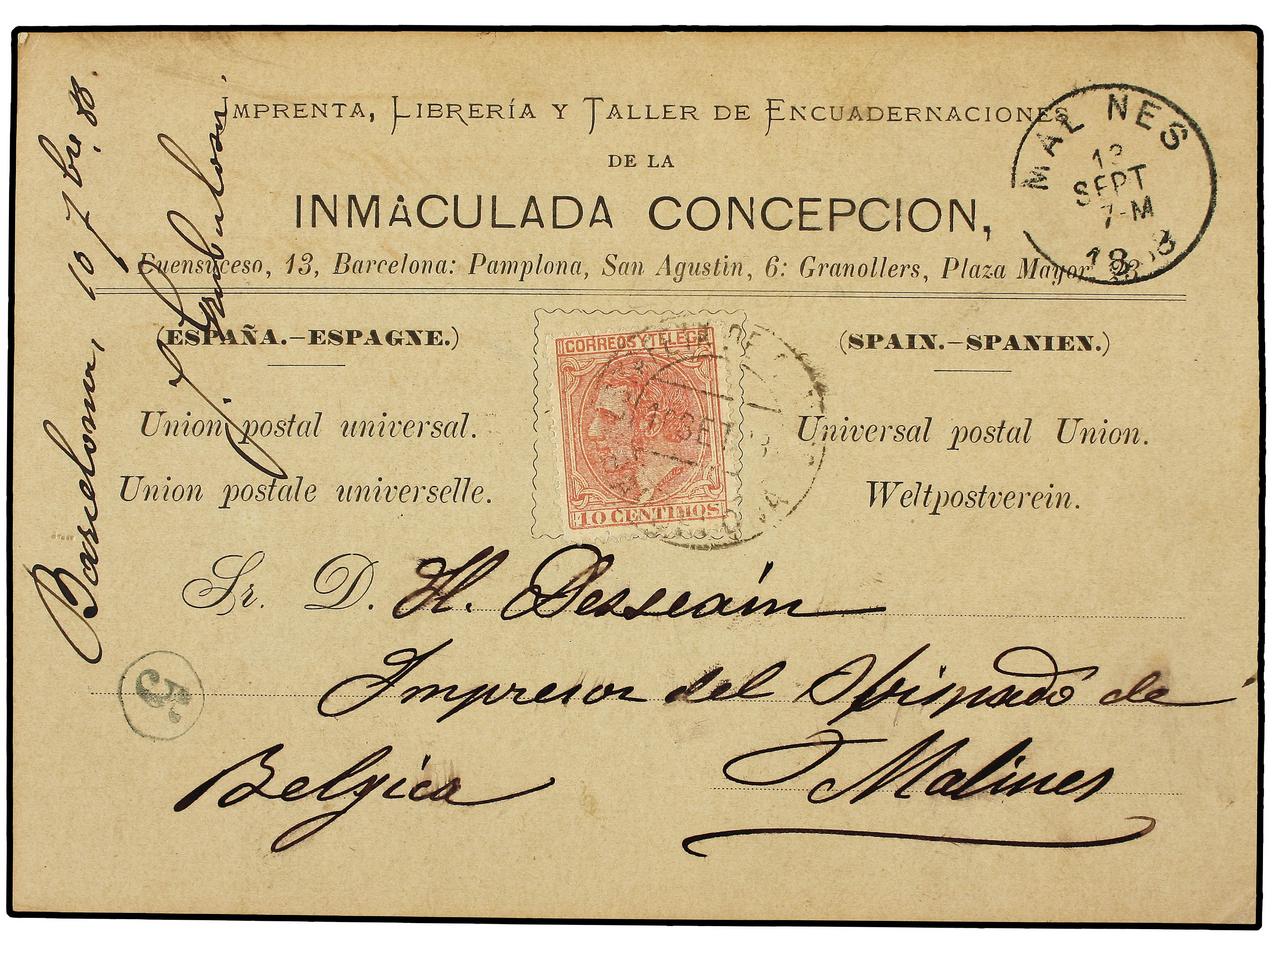 IMPRENTA, LIBRERÍA Y TALLER DE ENCUADERNACIONES
DE LA
INMACULADA CONCEPCION,
Fuensuceso, 13, Barcelona: Pamplona, San Agustin, 6: Granollers, Plaza Mayor
(ESPAÑA.–ESPAGNE.)
(SPAIN.–SPANIEN.)
Union postal universal.
Universal postal Union.
Union postale universelle.
Weltpostverein.
CORREOS Y TELEG
10 CENTIMOS
MALINES
13
SEPT
7-M
Sr. D. H. Dessain
Impresor del Arzobispado de
Malines
Belgica
Barcelona, 10 7bre 88.
5